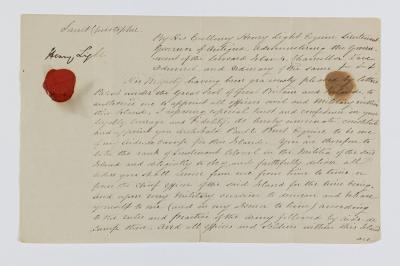 Saint Christopher
By His Excellency Henry Light Esquire Lieutenant
Governor of Antigua Administering the Govern-
Henry Light
ment of the Leeward Islands Chancellor Vice
Admiral and Ordinary of the same
Her Majesty having been graciously pleased by letters
Patent under the Great Seal of Great Britain and
authorize me to appoint all officers civil and Military within
this Island, I reposing especial trust and confidence in your
Loyalty Courage and Fidelity, do hereby nominate constitute
and appoint you Archibald Burt Esquire to be one
of my aides de camp for this Island. You are therefore to
take the rank of Lieutenant Colonel in the Militia of the said
Island and diligently to obey and faithfully deliver all
orders you shall receive from me from time to time or
from the Chief officer of the said Island for the time being
and upon every Military occasion to demean and behave
yourself to me (and in my absence to him) according
to the rules and practice of the Army followed by aids de
camp there. And all officers and Soldiers within this Island
are